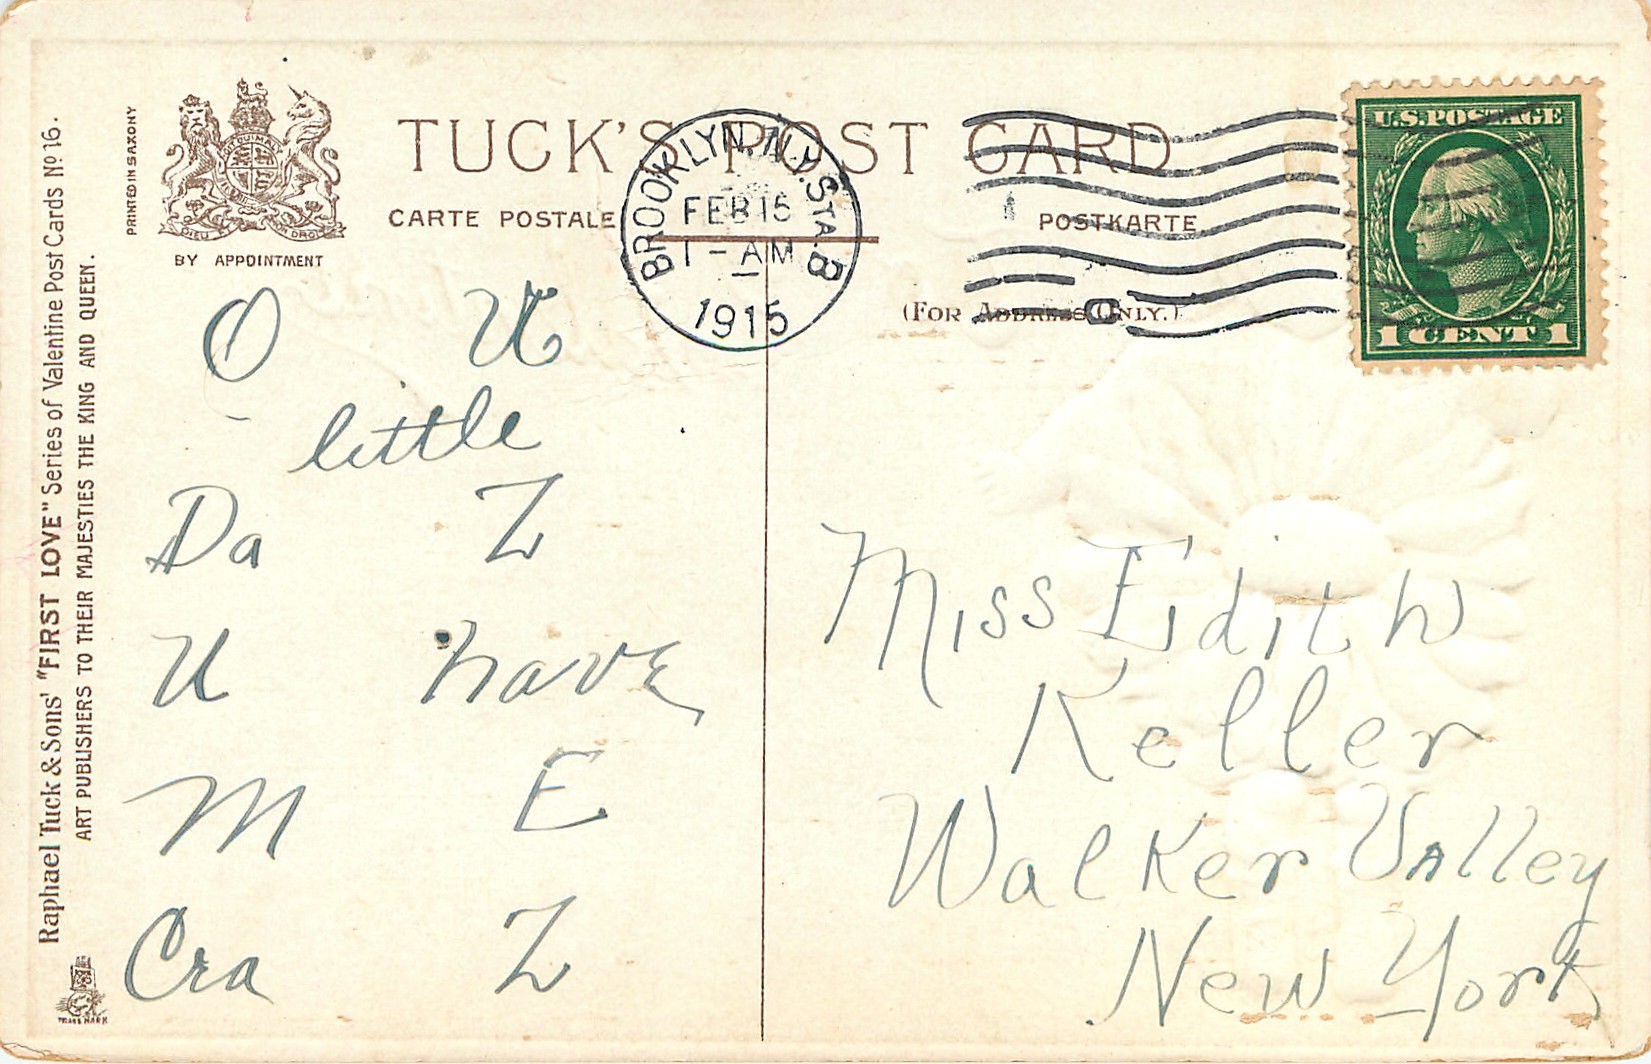 PRINTED IN SAXONY
DIEU ET MON DROIT
BY APPOINTMENT
TUCK'S POST CARD
CARTE POSTALE
POSTKARTE
(FOR ADDRESS ONLY.)
BROOKLYN, N.Y. STA. B
FEB 15
1 - AM
1915
U.S. POSTAGE
1 CENT 1
Raphael Tuck & Sons' "FIRST LOVE" Series of Valentine Post Cards No 16.
ART PUBLISHERS TO THEIR MAJESTIES THE KING AND QUEEN.
TRADE MARK
O U
little
Da Z
U have
M E
Cra Z
Miss Edith
Keller
Walker Valley
New York